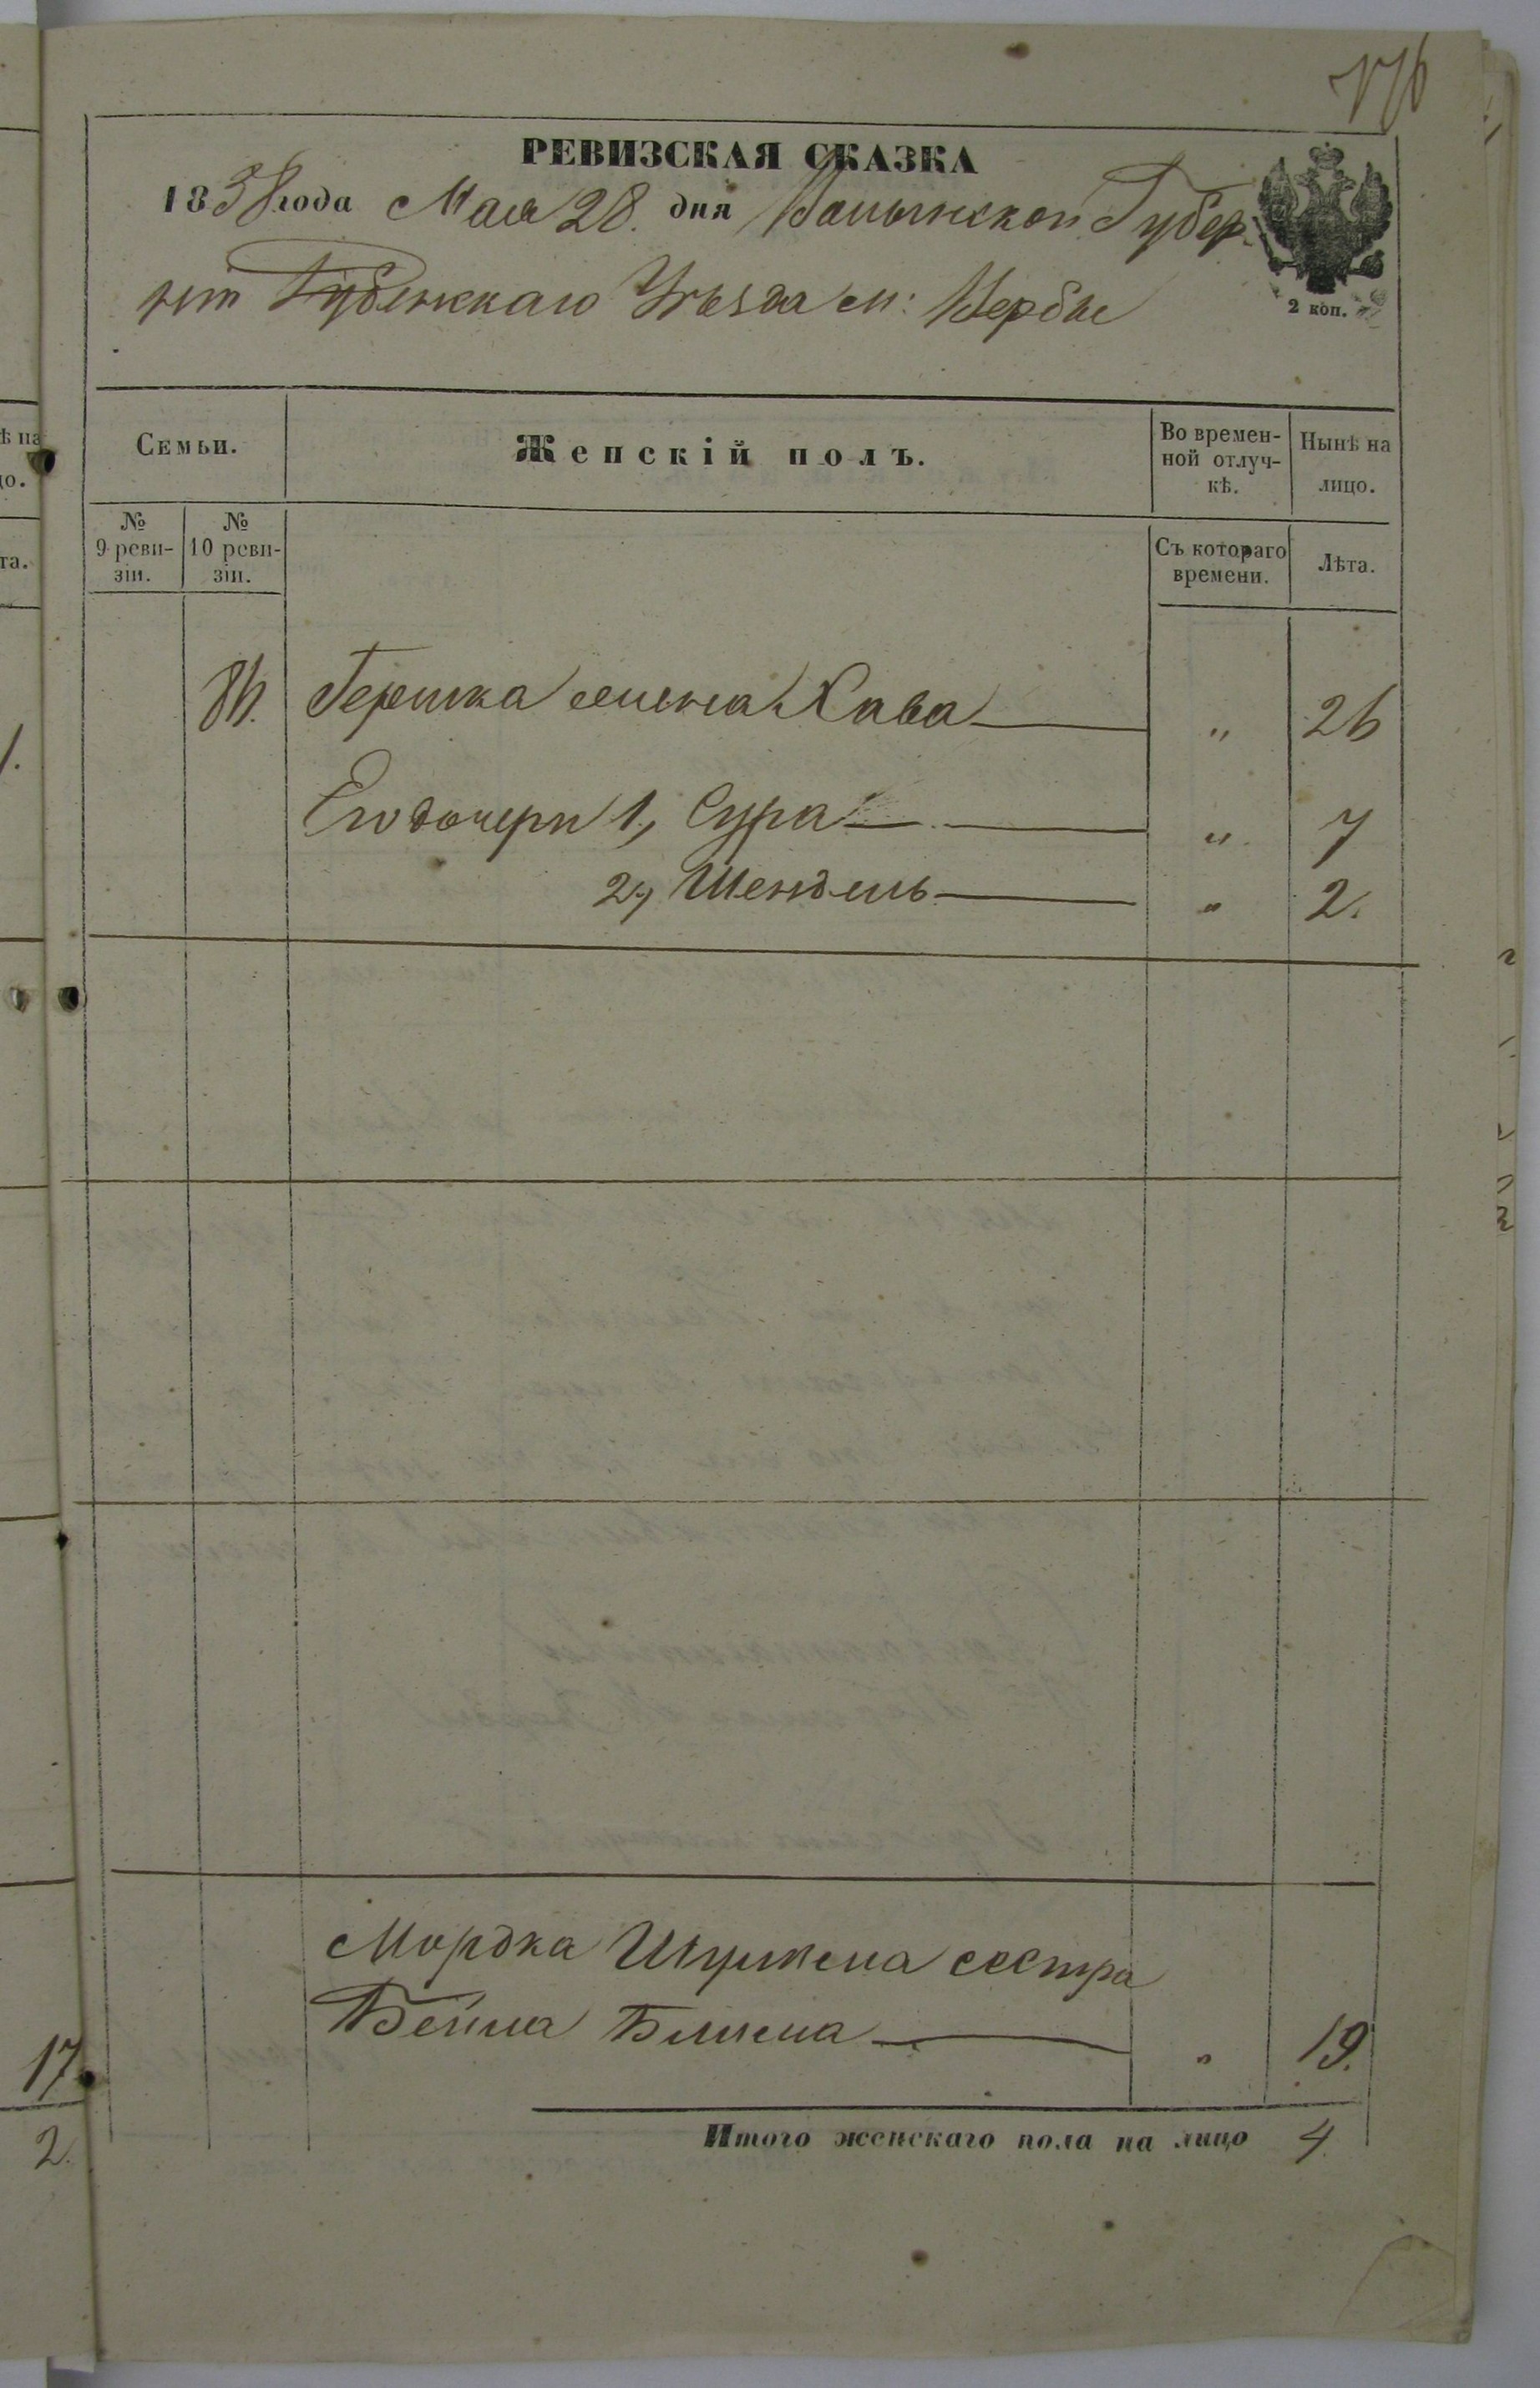 176
РЕВИЗСКАЯ СКАЗКА
1858 года Мая 28. дня Волынской Губер-
ніи Дубенскаго Уѣзда м: Вербы
2 коп.
Семьи.
Женскій полъ.
Во времен-
ной отлуч-
кѣ.
Нынѣ на
лицо.
№
9 реви-
зіи.
№
10 реви-
зіи.
Съ котораго
времени.
Лѣта.
Гершка жена Хава — " 26
Его дочери 1, Сура — " 7
2, Шендель — " 2.
Мордка сестра
Бейла — " 19.
Итого женскаго пола на лицо 4.
ѣ на
до.
та.
1.
17.
2.